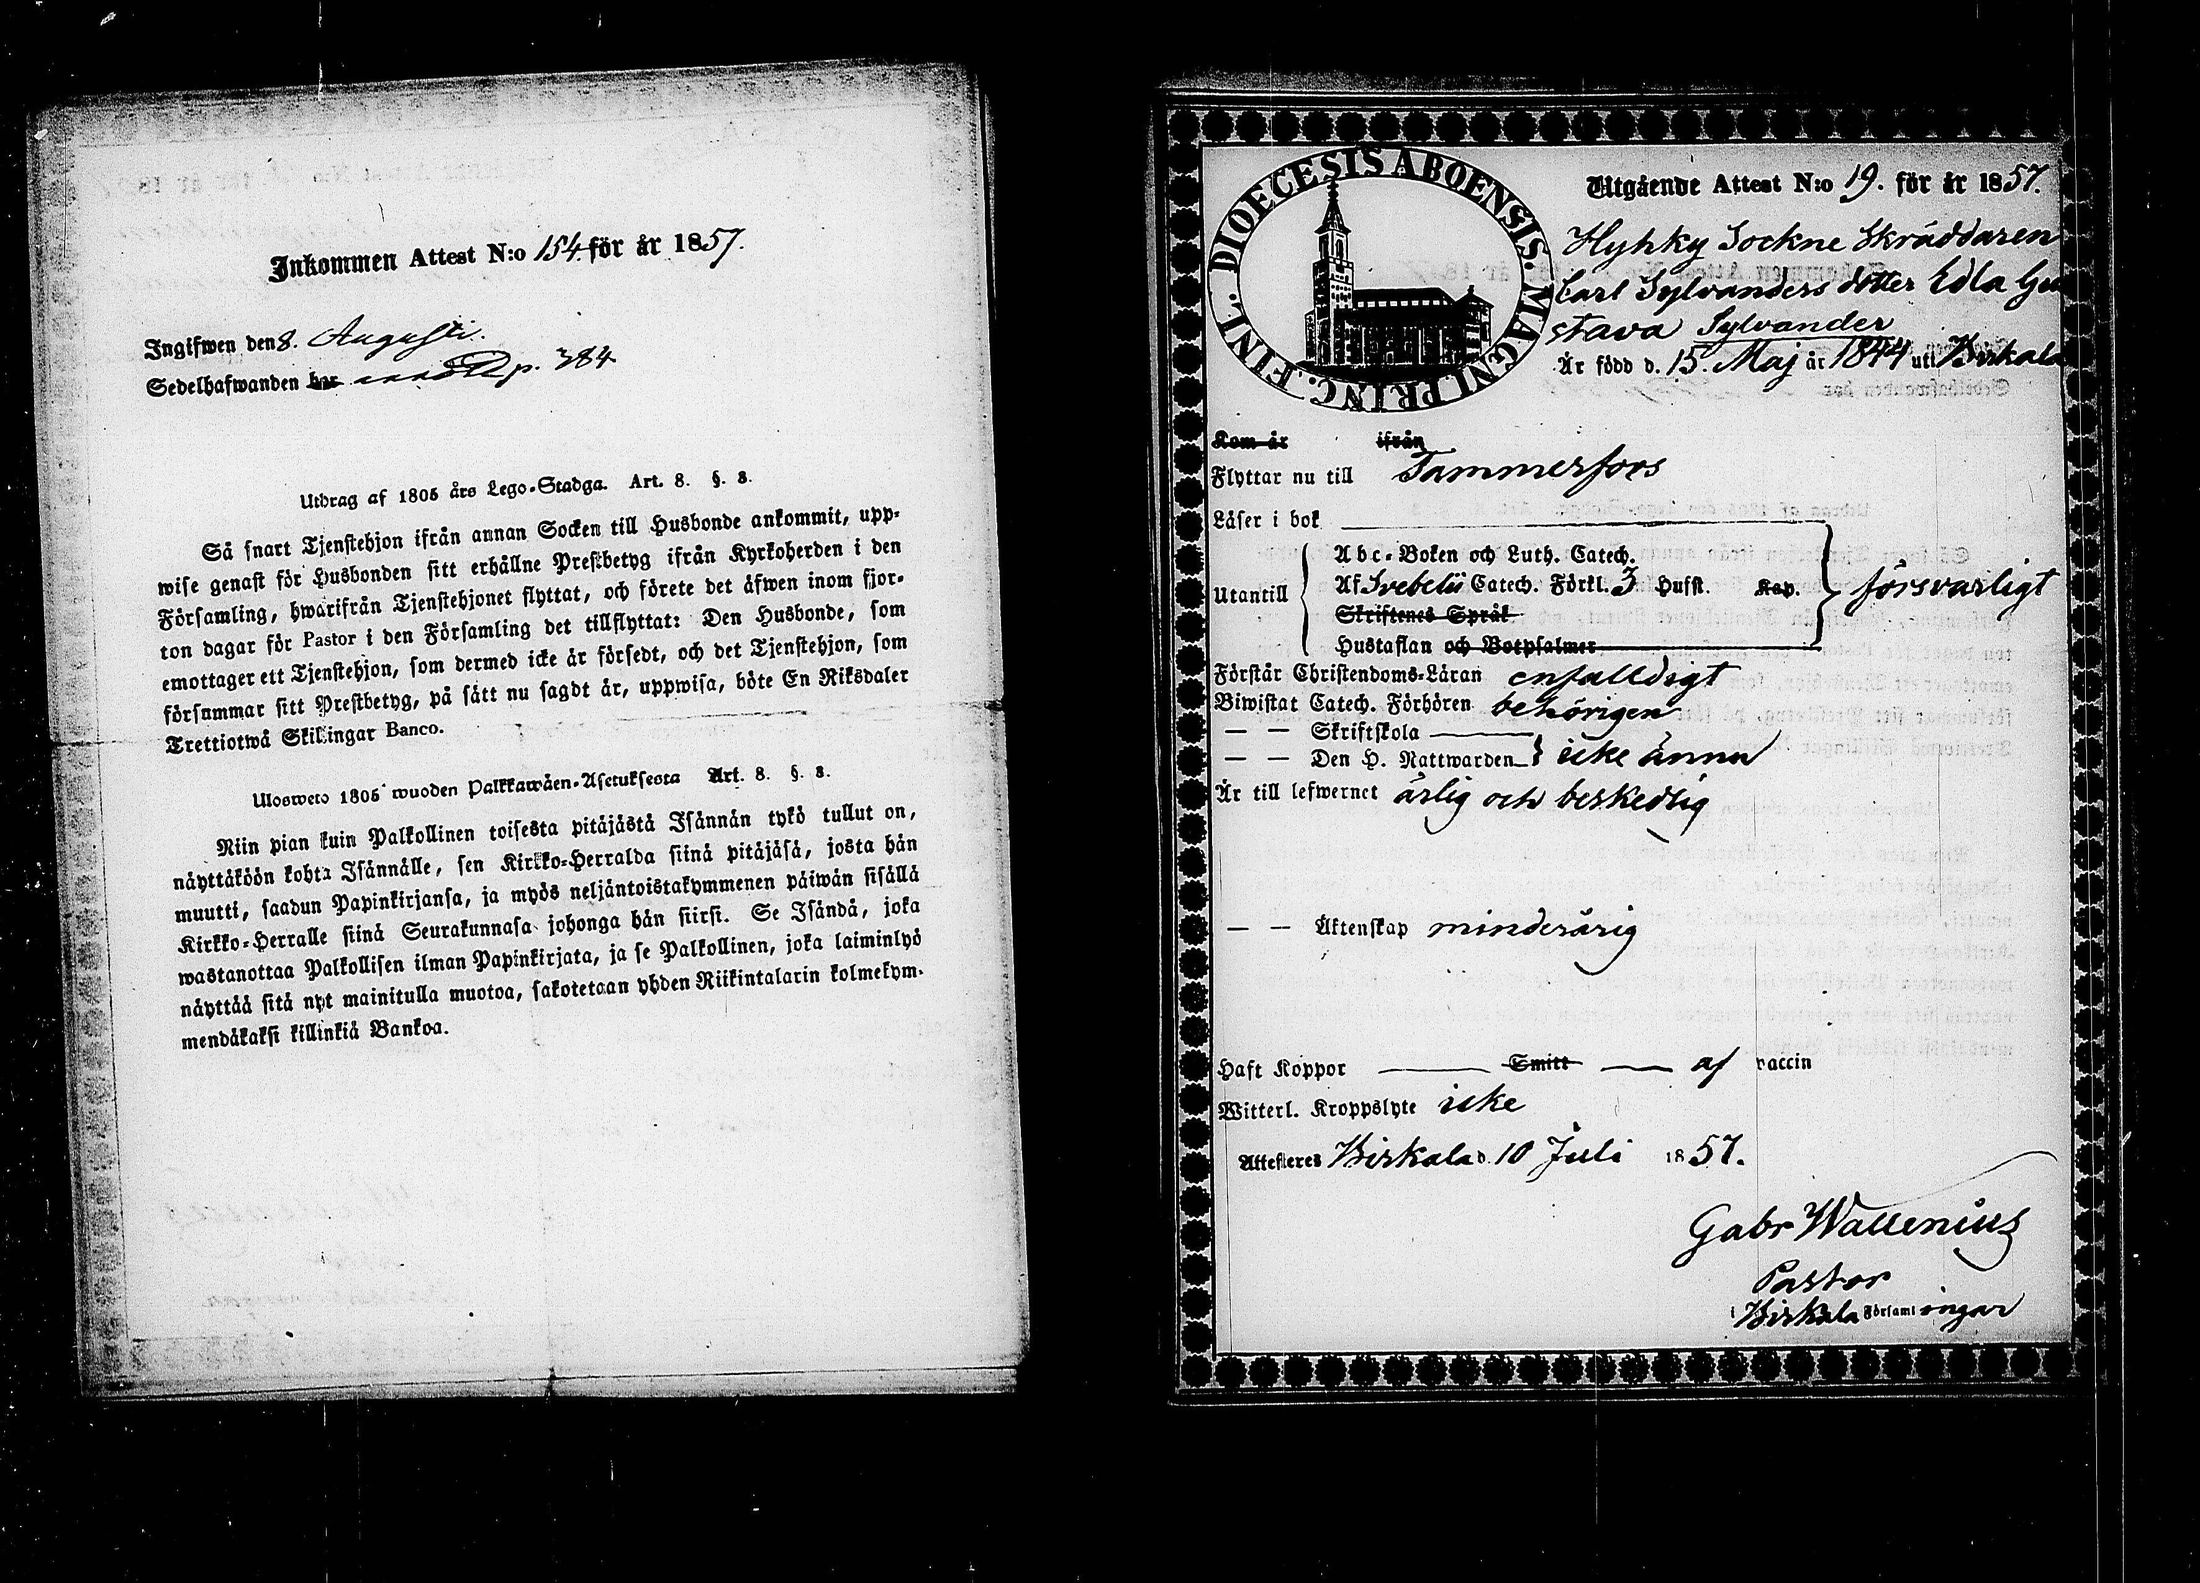 Inkommen Attest N:o 154 för år 1857.
Ingifwen den 8. Augusti.
Sedelhafwanden har p. 384
Utdrag af 1805 års Lego-Stadga. Art. 8. §. 8.
Så snart Tjenstehjon ifrån annan Socken till Husbonde ankommit, upp-
wise genast för Husbonden sitt erhållne Prestbetyg ifrån Kyrkoherden i den
Församling, hwarifrån Tjenstehjonet flyttat, och förete det äfwen inom fjor-
ton dagar för Pastor i den Församling det tillflyttat: Den Husbonde, som
emottager ett Tjenstehjon, som dermed icke är försedt, och det Tjenstehjon, som
försummar sitt Prestbetyg, på sätt nu sagdt är, uppwisa, böte En Riksdaler
Trettiotwå Skillingar Banco.
Ulosweto 1805 wuoden Palkkawäen-Asetuksesta Art. 8. §. 8.
Niin pian kuin Palkollinen toisesta pitäjästä Isännän tykö tullut on,
näyttäköön kohta Isännälle, sen Kirkko-Herralda siinä pitäjäsä, josta hän
muutti, saadun Papinkirjansa, ja myös neljäntoistakymmenen päiwän sisällä
Kirkko-Herralle siinä Seurakunnasa johonga hän siirsi. Se Isändä, joka
wastanottaa Palkollisen ilman Papinkirjata, ja se Palkollinen, joka laiminlyö
näyttää sitä nyt mainitulla muotoa, sakotetaan yhden Riikintalarin kolmekym-
mendäkaksi killinkiä Bankoa.
DIOECESIS ABOENSIS. MAGNI PRINC. FINL.
Utgående Attest N:o 19. för år 1857.
Hyhky Sockne Skräddaren
Carl Sylvanders dotter Edla Gu
stava Sylvander
Är född d. 15. Maj år 1844 uti Birkala
Kom år ifrån
Flyttar nu till Tammerfors
Läser i bok
Utantill
Abc-Boken och Luth. Catech.
Af Svebelii Catech. Förkl. 3 Hufst. Kap.
Skriftenes Språk
Hustaflan och Botpsalmer
försvarligt
Förstår Christendoms-Läran enfalldigt
Biwistat Catech. Förhören behörigen
— — Skriftskola
— — Den H. Nattwarden icke ännu
Är till lefwernet ärlig och beskedlig
— — Äktenskap minderårig
Haft Koppor Smitt af vaccin
Witterl. Kroppslyte icke
Attesteres Birkala d. 10 Juli 1857.
Gabr Wallenius
Pastor
i Birkala Församl ingar